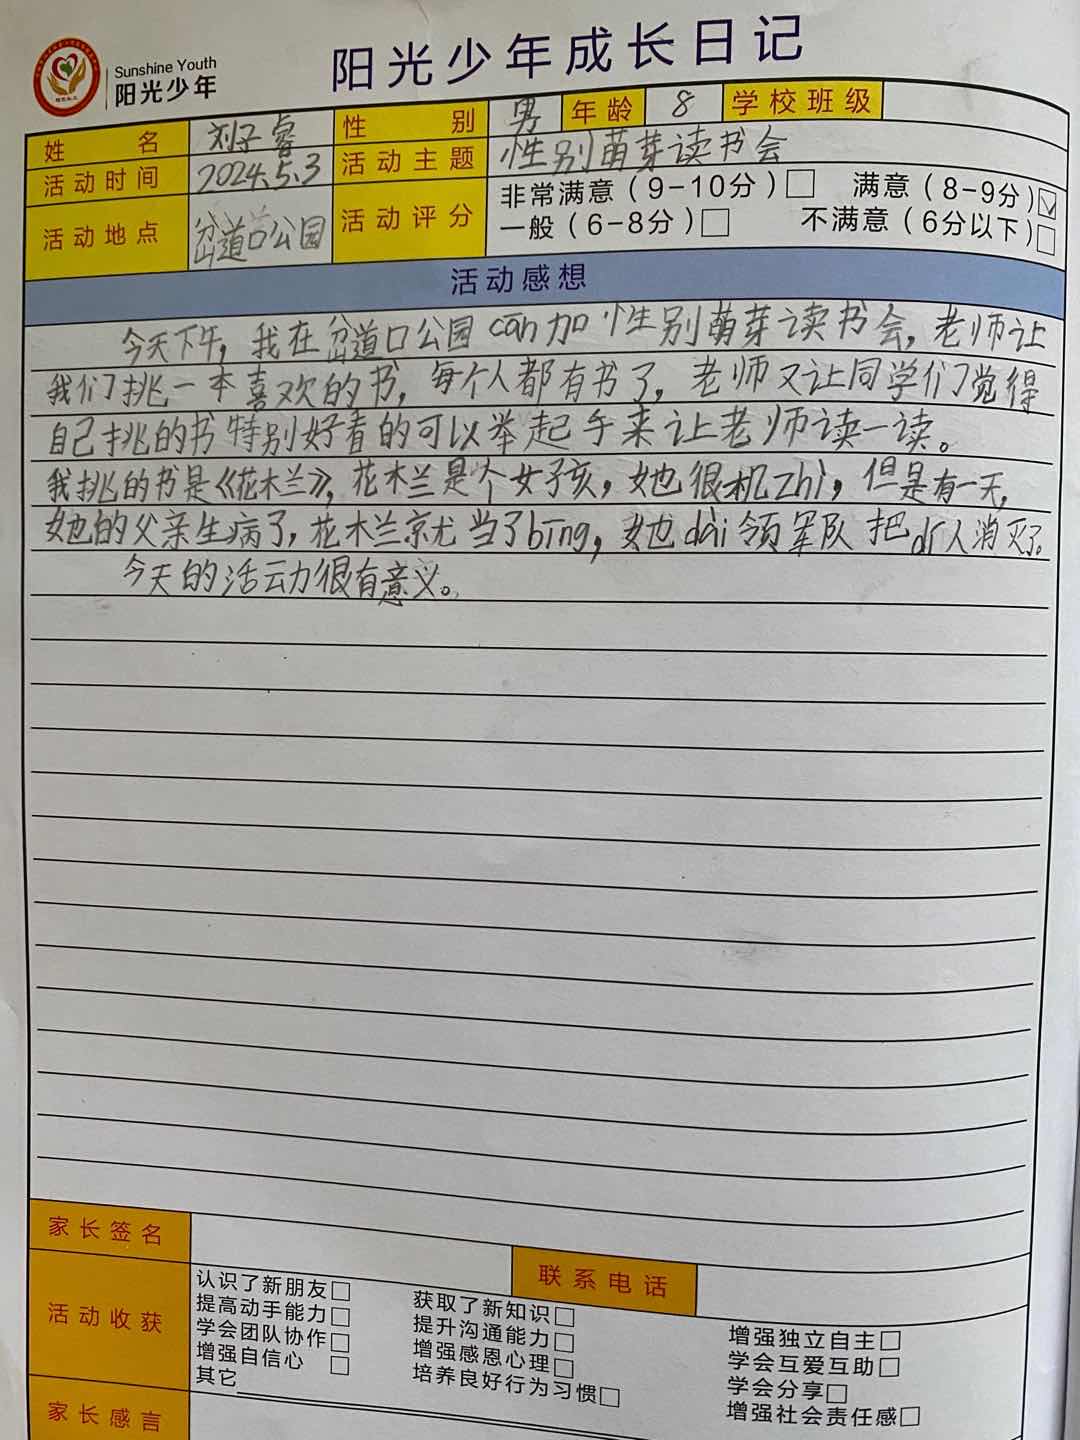 Sunshine Youth
阳光少年
阳光少年成长日记
姓名 刘子睿 性别 男 年龄 8 学校班级
活动时间 2024.5.3 活动主题 性别萌芽读书会
活动地点 岔道口公园 活动评分 非常满意（9-10分）□ 满意（8-9分）☑
一般（6-8分）□ 不满意（6分以下）□
活动感想
今天下午，我在岔道口公园cān加性别萌芽读书会，老师让
我们挑一本喜欢的书，每个人都有书了，老师又让同学们觉得
自己挑的书特别好看的可以举起手来让老师读一读。
我挑的书是《花木兰》，花木兰是个女孩，她很机zhì，但是有一天，
她的父亲生病了，花木兰就当了bīng，她dài领军队把dí人消灭了。
今天的活动很有意义。
家长签名 联系电话
活动收获
认识了新朋友□ 获取了新知识□ 增强独立自主□
提高动手能力□ 提升沟通能力□ 学会互爱互助□
学会团队协作□ 增强感恩心理□ 学会分享□
增强自信心□ 培养良好行为习惯□ 增强社会责任感□
其它
家长感言